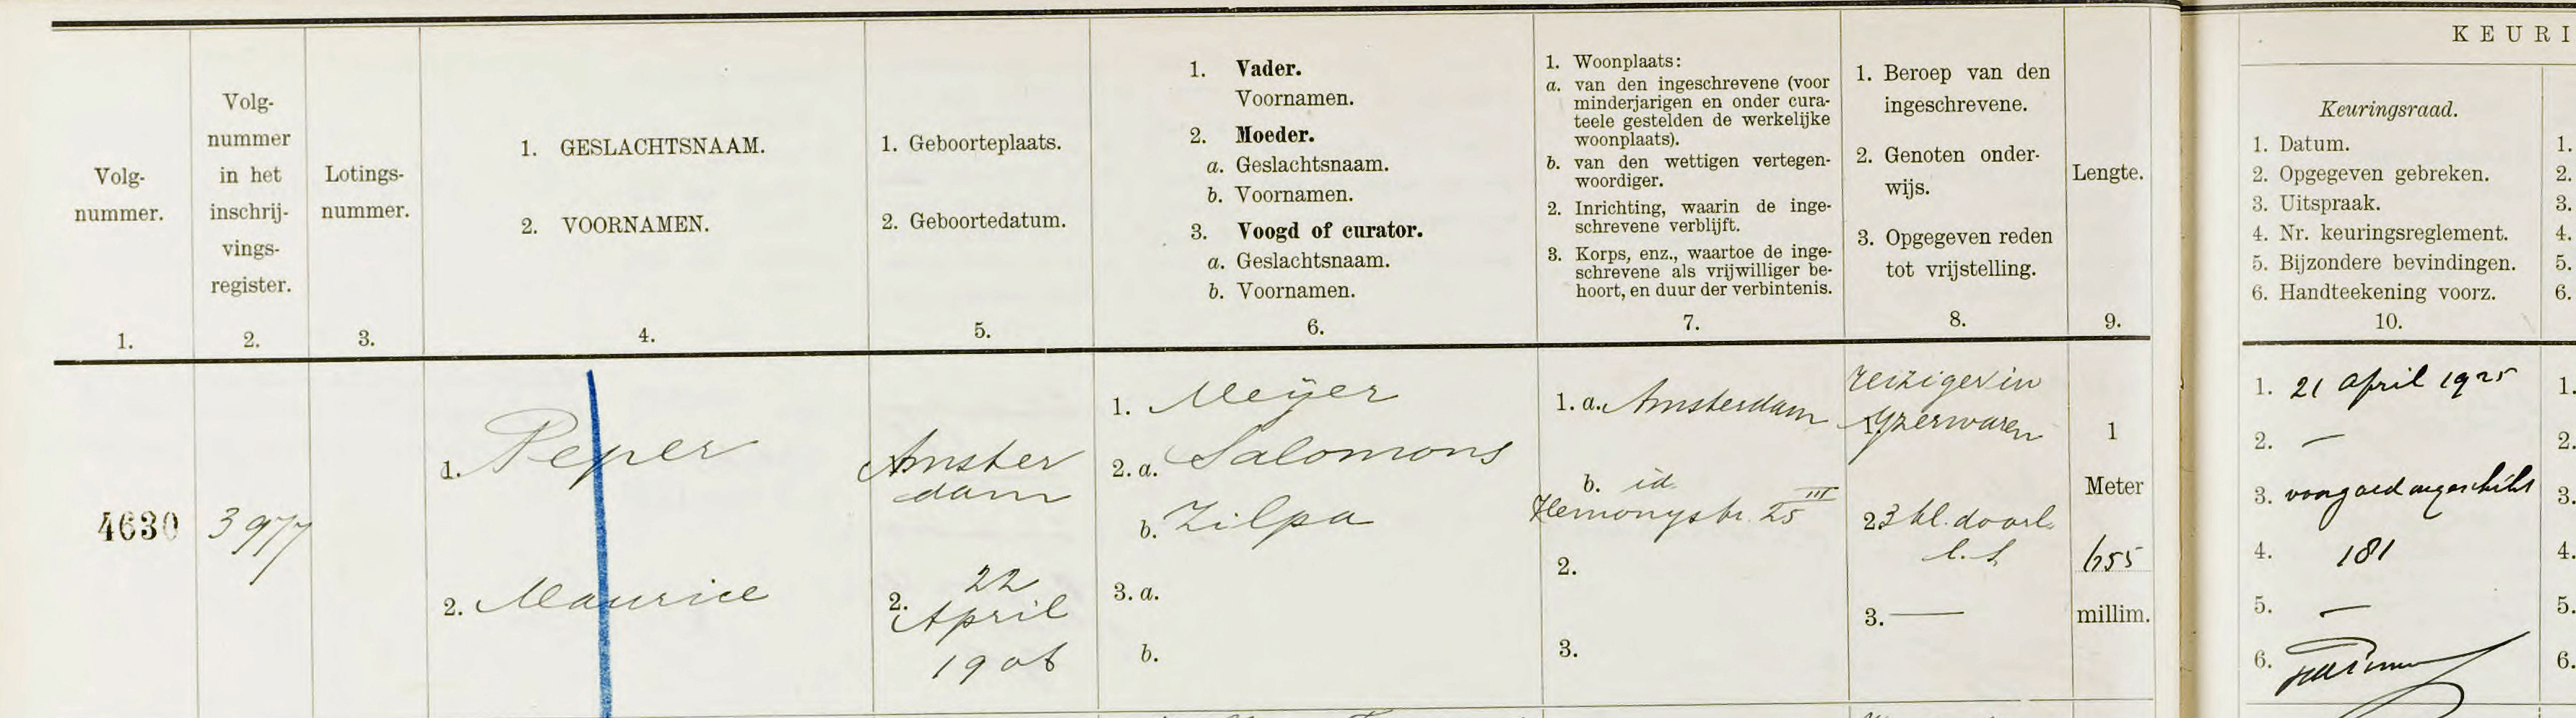 KEURI
Volg-
nummer.
1.
Volg-
nummer
in het
inschrij-
vings-
register.
2.
Lotings-
nummer.
3.
1. GESLACHTSNAAM.
2. VOORNAMEN.
4.
1. Geboorteplaats.
2. Geboortedatum.
5.
1. Vader.
Voornamen.
2. Moeder.
a. Geslachtsnaam.
b. Voornamen.
3. Voogd of curator.
a. Geslachtsnaam.
b. Voornamen.
6.
1. Woonplaats:
a. van den ingeschrevene (voor
minderjarigen en onder cura-
teele gestelden de werkelijke
woonplaats).
b. van den wettigen vertegen-
woordiger.
2. Inrichting, waarin de inge-
schrevene verblijft.
3. Korps, enz., waartoe de inge-
schrevene als vrijwilliger be-
hoort, en duur der verbintenis.
7.
1. Beroep van den
ingeschrevene.
2. Genoten onder-
wijs.
3. Opgegeven reden
tot vrijstelling.
8.
Lengte.
9.
Keuringsraad.
1. Datum.
2. Opgegeven gebreken.
3. Uitspraak.
4. Nr. keuringsreglement.
5. Bijzondere bevindingen.
6. Handteekening voorz.
10.
1.
2.
3.
4.
5.
6.
4630
3977
1. Peper
2. Maurice
Amster
dam
2. 22
April
1906
1. Meijer
2. a. Salomons
b. Zilpa
3. a.
b.
1. a. Amsterdam
b. id.
Hemonystr. 25 III
2.
3.
reiziger in
1. Yzerwaren
2. 3 kl. doorl.
l. s
3. —
1
Meter
655
millim.
1. 21 april 1925
2. —
3. voorgoed ongeschikt
4. 181
5. —
6.
1.
2.
3.
4.
5.
6.